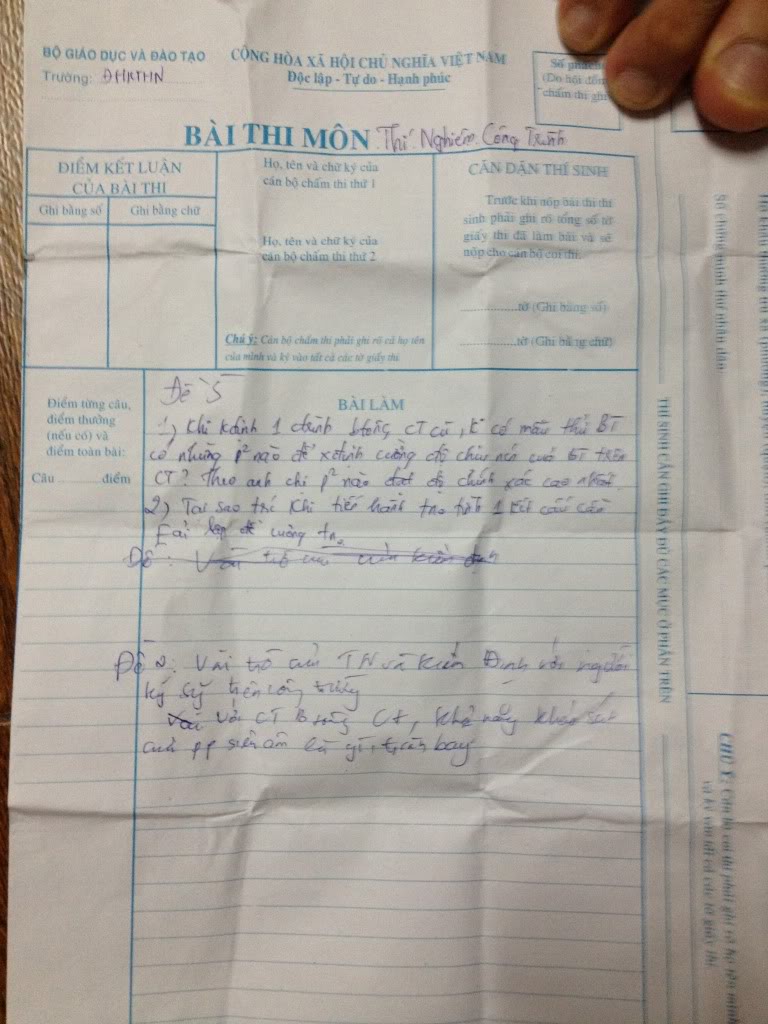 BỘ GIÁO DỤC VÀ ĐÀO TẠO
Trường: ĐHKTHN
CỘNG HÒA XÃ HỘI CHỦ NGHĨA VIỆT NAM
Độc lập - Tự do - Hạnh phúc
Số phách
(Do hội đồng
chấm thi ghi
BÀI THI MÔN Thí Nghiệm Công Trình
ĐIỂM KẾT LUẬN
CỦA BÀI THI
Ghi bằng số
Ghi bằng chữ
Họ, tên và chữ ký của
cán bộ chấm thi thứ 1
Họ, tên và chữ ký của
cán bộ chấm thi thứ 2
Chú ý: Cán bộ chấm thi phải ghi rõ cả họ tên
của mình và ký vào tất cả các tờ giấy thi
CĂN DẶN THÍ SINH
Trước khi nộp bài thi thí
sinh phải ghi rõ tổng số tờ
giấy thi đã làm bài và sẽ
nộp cho cán bộ coi thi:
tờ (Ghi bằng số)
tờ (Ghi bằng chữ)
Điểm từng câu,
điểm thưởng
(nếu có) và
điểm toàn bài:
Câu ........ điểm
Đề 5
BÀI LÀM
1) Khi kđịnh 1 ctrình btông CT cũ, k có mẫu thử BT
có những p² nào để xđịnh cường độ chịu nén của BT trên
CT? Theo anh chị p² nào đạt độ chính xác cao nhất.
2) Tại sao trc khi tiến hành tno tĩnh 1 kết cấu cần
fải lập đề cương tno
Đề: Vai trò của kiểm định
Đề 2: Vai trò của TN và kiểm Định với người
kỹ sư trên công trường
Với CT B tông Ct, khả năng khảo sát
của pp siêu âm là gì, trình bày
THÍ SINH CẦN GHI ĐẦY ĐỦ CÁC MỤC Ở PHẦN TRÊN
Số chứng minh thư nhân dân
CHÚ Ý: Cán bộ coi thi phải ghi rõ họ tên mình
và ký vào tất cả các tờ giấy thi